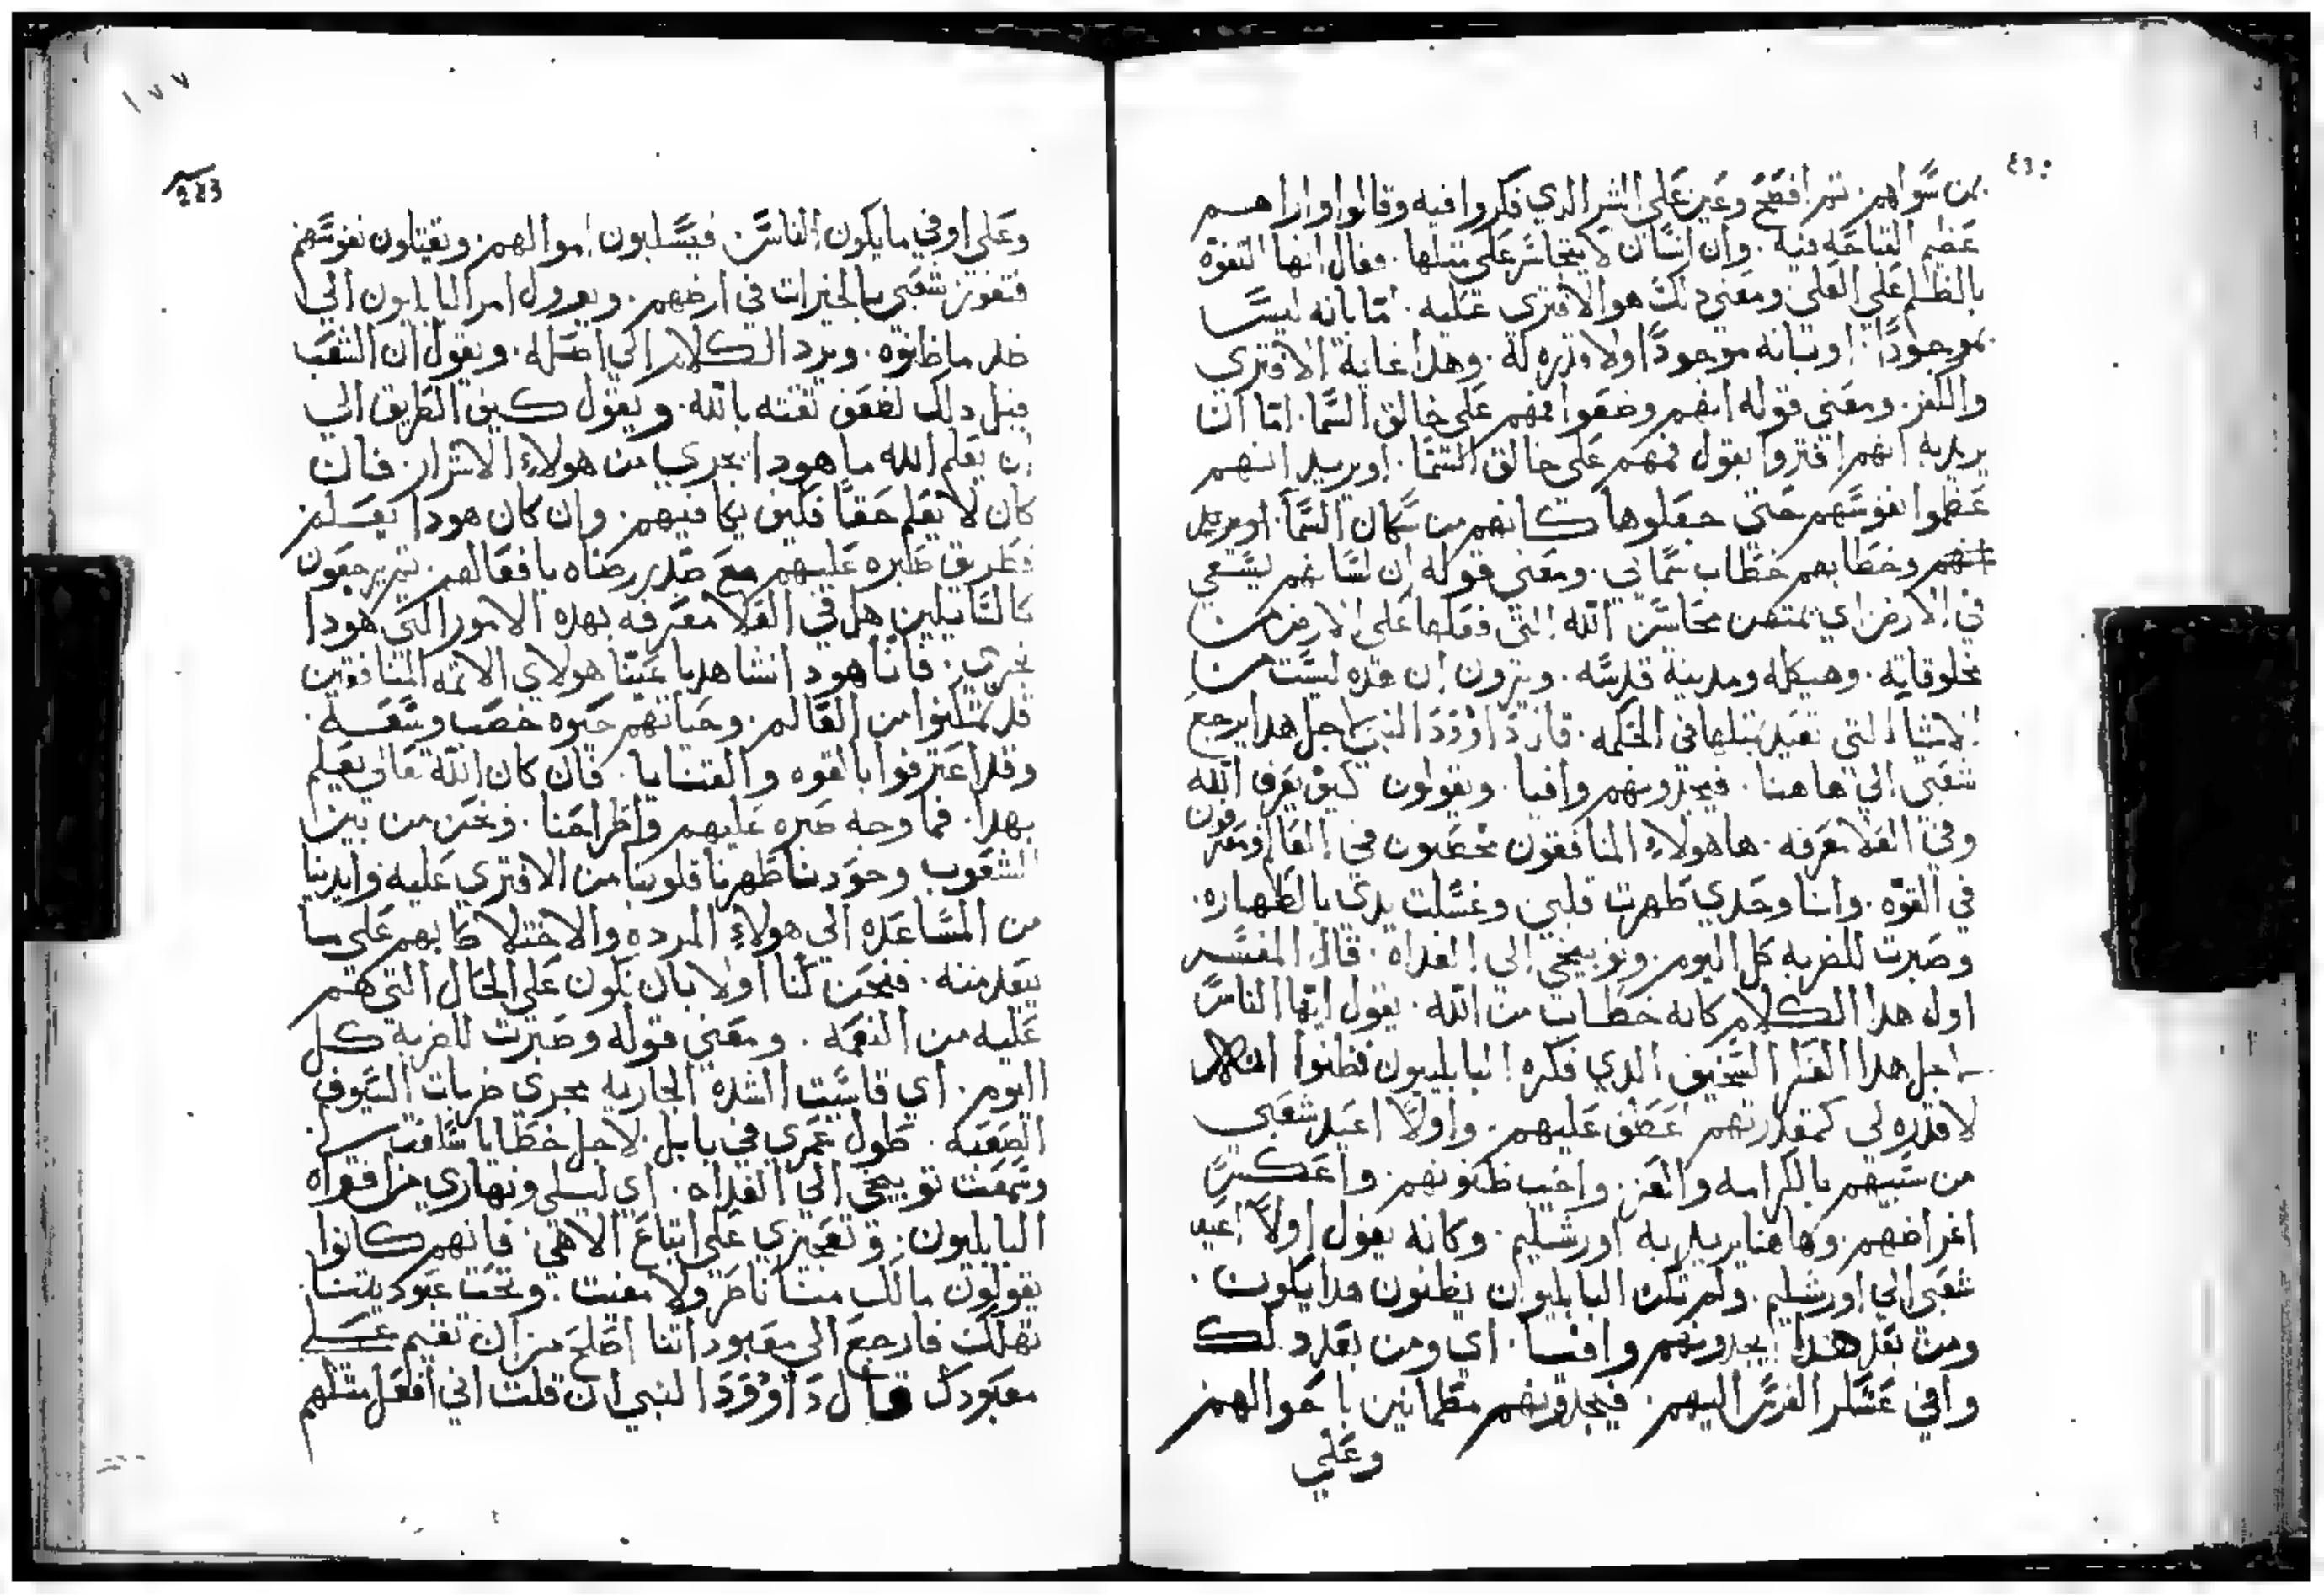 من سواهم. ثم افضح وعير على الشر الدي فكروا فيه وقالوا واراهم
عظم القباحه فيه. وان انسان لا يتجاسر على مثلها. فقال انها التفوه
بالظلم على العلي ومعني دلك هو الافتري عليه. اما بانه ليس
بموجودًا. او بانه موجودًا ولا قدره له. وهدا غاية الافتري
والكفر. ومعني قوله انهم وضعوا فمهم على خالق السما. اما ان
يريد به انهم افتروا بقول فمهم على خالق السما. او يريد انهم
عظموا نفوسهم حتي جعلوها كانهم من سكان السما. او يريد
انهم وخطابهم خطاب سماني. ومعني قوله ان لسانهم يسعي
في الارض اي يمتهن محاسن الله التي فعلها على الارض من
مخلوقاته. وهيكله ومدينة قدسه. ويرون ان هده ليست من
الاشيا التي تفيد مثلها في الحكمه. قال داوود النبي اجل هدا يرجع
شعبي الي هاهنا. فيجدونهم وافيا. ويقولون كيف يعرف الله
وفي العلا معرفه. ها هولاء المنافقون مخصبون في العالم ومعترفون
في القوه. وانا وحدي طهرت قلبي وغسلت يدي بالطهاره.
وصرت للضربه كل اليوم. وتوبيخي الي الغداه. قال المفسر
اول هدا الكلام كانه خطاب من الله. يقول ايها الناس
اجل هدا الفكر السخيف الدي فكره البابليون فظنوا
لا قدره لي كمقدرتهم عطف عليهم. واولًا اعيد شعبي
من سبيهم بالكرامه والعز. واخيب ظنونهم. واعكس
اغراضهم. وهاهنا يريد به اورشليم. وكانه يقول اولاً اعيد
شعبي الي اورشليم. ولم تكن البابليون يظنون هدا يكون.
ومن بعد هدا يجدونهم وافيا. اي ومن بعد دلك
وافي عسكر الفرس اليهم. فيجدونهم مطمانين باحوالهم
وعلي
١٧٧
وعلى اوفي ما يكون الناس. فيسلبون اموالهم. ويقتلون نفوسهم
فتفوز شعبي بالخيرات في ارضهم. ويوول امر البابليون الي
ضد ما ظنوه. ويرد الكلام الي اصله. ويقول ان الشعب
قبل دلك لضعف ثقته بالله. ويقول كيف الطريق الي
ان يعلم الله ما هودا يجري من هولاء الاشرار. فان
كان لا يعلم حقًا فكيف يكافيهم. وان كان هودا يعلم
فطريق صبره عليهم مع ضد رضاه بافعالهم. ثم يرجعون
كالسايلين هل في العلا معرفه بهده الامور التي هودا
تجري. فاننا هودا نشاهد باعيننا هولاي الامه المنافقين
قد تمكنوا من العالم. وحياتهم حيوه خصب وسعه.
وقد اعترفوا بالقوه والقنايا. فان كان الله تعالى يعلم
بهدا. فما وجه صبره عليهم واطراحنا. ونحن من بين
الشعوب وحودنا طهرنا قلوبنا من الافتري عليه وايدينا
من المساعده الي هولاء المرده والاختلاط بهم على ما
يبعد منه. فنحن كنا اولا بان نكون على الحال التي هم
عليه من النعمه. ومعني قوله وصرت للضربه كل
اليوم. اي قاسيت الشده الجاريه مجري ضربات السيوف
الصعبه. طول عمري في بابل لاجل خطايا سالفت لي
وسمعت توبيخي الي الغداه. اي ليلي ونهاري من افواه
البابليون. وتعجبزي على اتباع الاهي. فانهم كانوا
يقولون مالك منا ناصر ولا مغيث. وتحت عبوديتنا
تهلك فارجع الي معبوداتنا اصلح من ان تقيم على
معبودك قال داوود النبي ان قلت اني افعل مثلهم